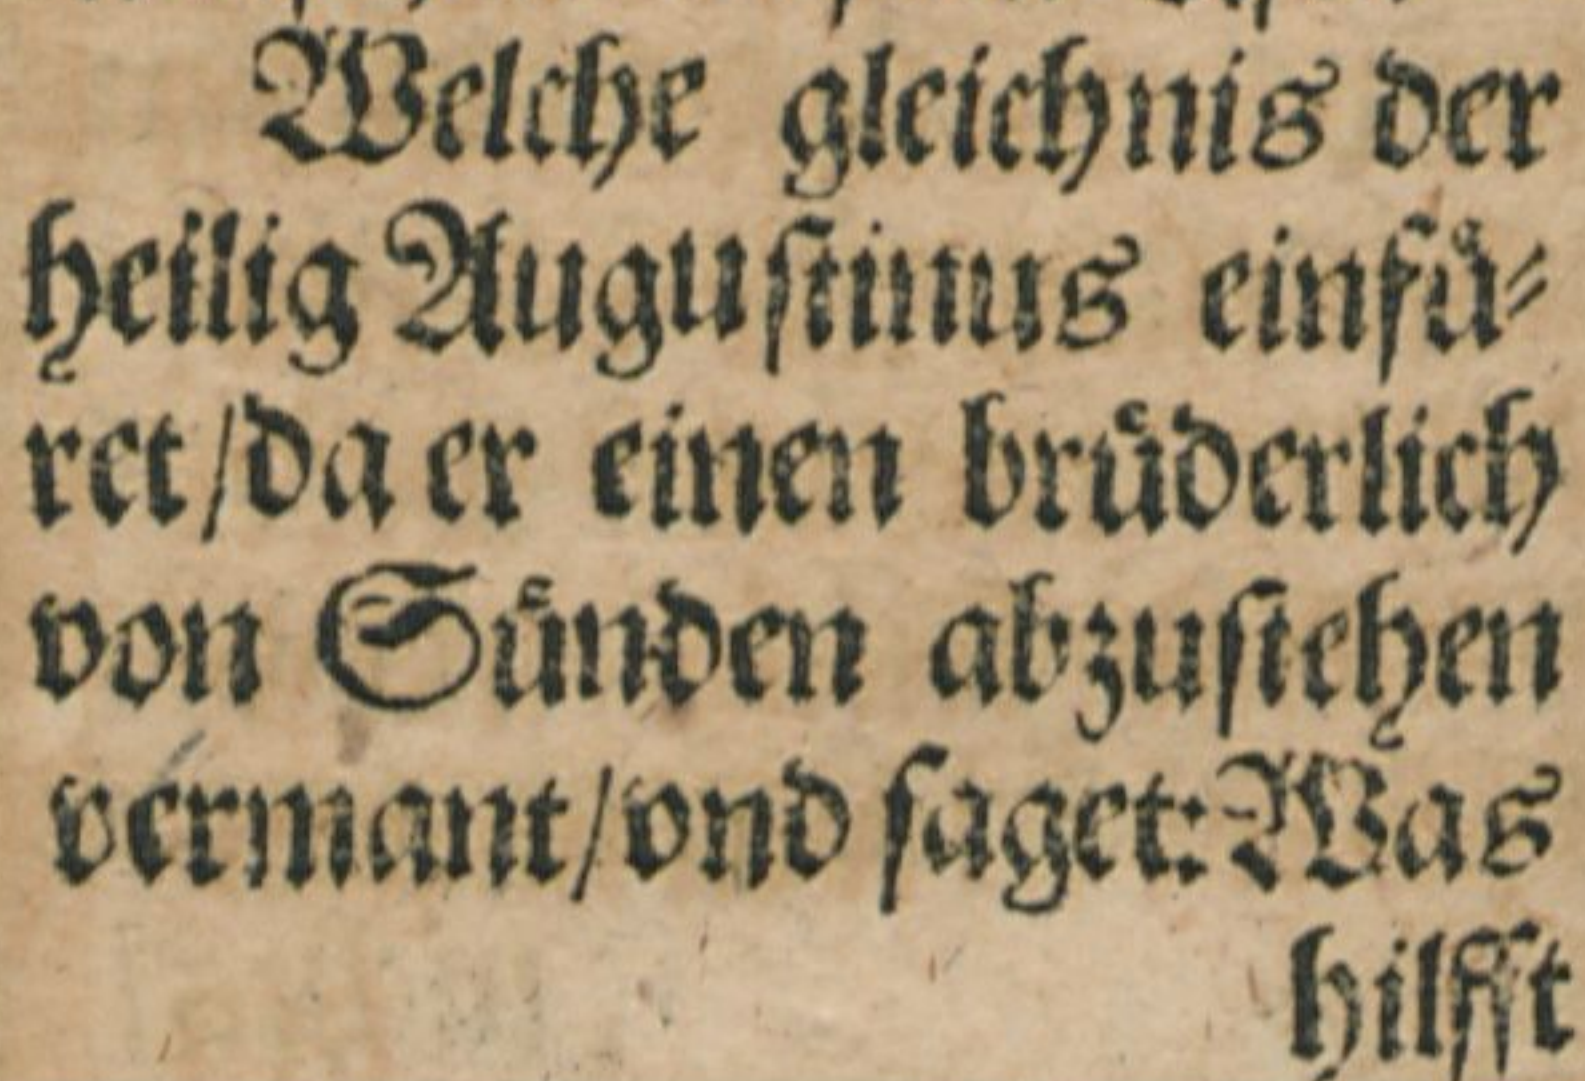 Welche gleichnis der
heilig Auguſtinus einfuͤ⸗
ret/da er einen bruͤderlich
von Suͤnden abzuſtehen
vermant/vnd ſaget: Was
hilfft